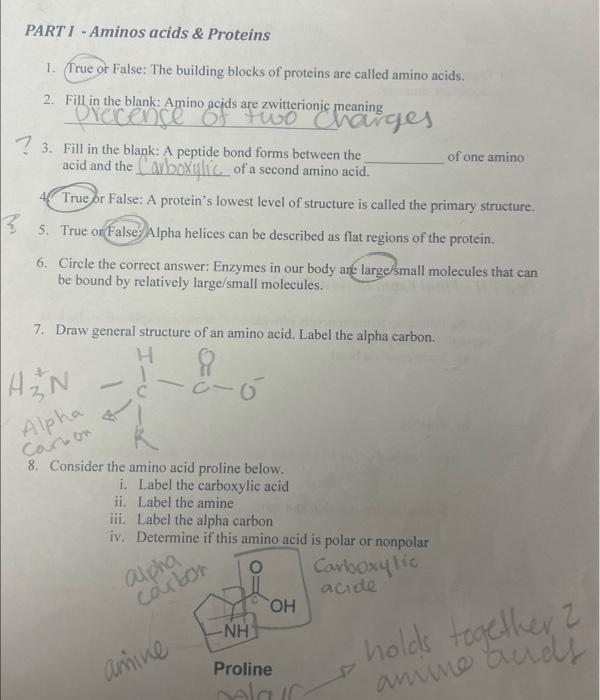 PART I - Aminos acids & Proteins
1. True or False: The building blocks of proteins are called amino acids.
2. Fill in the blank: Amino acids are zwitterionic meaning
precence of two charges
? 3. Fill in the blank: A peptide bond forms between the ________ of one amino
acid and the Carboxylic of a second amino acid.
4. True or False: A protein's lowest level of structure is called the primary structure.
5. True or False: Alpha helices can be described as flat regions of the protein.
6. Circle the correct answer: Enzymes in our body are large/small molecules that can
be bound by relatively large/small molecules.
7. Draw general structure of an amino acid. Label the alpha carbon.
H O
H3+N - C - C - O-
Alpha
carbon
R
8. Consider the amino acid proline below.
i. Label the carboxylic acid
ii. Label the amine
iii. Label the alpha carbon
iv. Determine if this amino acid is polar or nonpolar
alpha
carbon
O
C
OH
NH
Carboxylic
acide
amine
Proline
holds together 2
amino acids